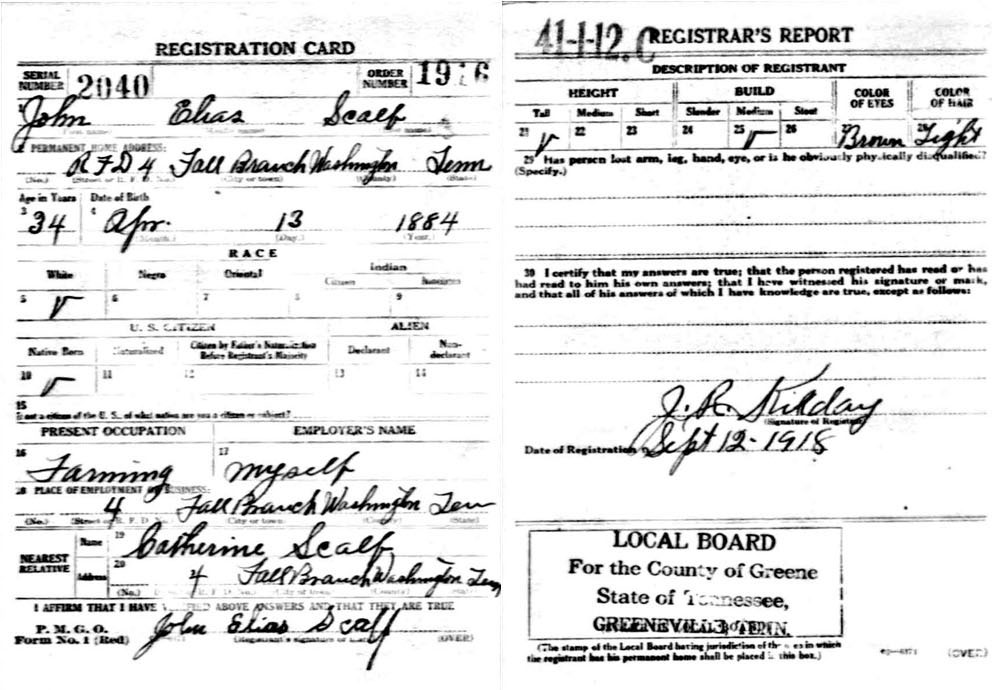 REGISTRATION CARD
SERIAL NUMBER 2040 ORDER NUMBER 1976
John Elias Scalf
PERMANENT HOME ADDRESS:
R F D 4 Fall Branch Washington Tenn
(No.) (Street or R. F. D. No.) (City or town) (County) (State)
Age in Years Date of Birth
3 34 4 Apr. 13 1884
(Month.) (Day.) (Year.)
RACE
White Negro Oriental Indian
Citizen Noncitizen
5 V 6 7 8 9
U. S. CITIZEN ALIEN
Native Born Naturalized Citizen by Father's Naturalization Before Registrant's Majority Declarant Non-declarant
10 V 11 12 13 14
15
If not a citizen of the U. S., of what nation are you a citizen or subject?
PRESENT OCCUPATION EMPLOYER'S NAME
16 Farming 17 myself
18 PLACE OF EMPLOYMENT OR BUSINESS:
4 Fall Branch Washington Ten
(No.) (Street or R. F. D. No.) (City or town) (County) (State)
NEAREST RELATIVE Name 19 Catherine Scalf
Address 20 4 Fall Branch Washington Tenn
(No.) (City or town) (County) (State)
I AFFIRM THAT I HAVE VERIFIED ABOVE ANSWERS AND THAT THEY ARE TRUE
P. M. G. O.
Form No. 1 (Red) John Elias Scalf
(Registrant's signature or mark) (OVER)
41-1-12. C REGISTRAR'S REPORT
DESCRIPTION OF REGISTRANT
HEIGHT BUILD COLOR OF EYES COLOR OF HAIR
Tall Medium Short Slender Medium Stout
21 V 22 23 24 25 V 26 27 Brown 28 Light
29 Has person lost arm, leg, hand, eye, or is he obviously physically disqualified?
(Specify.)
30 I certify that my answers are true; that the person registered has read or has
had read to him his own answers; that I have witnessed his signature or mark,
and that all of his answers of which I have knowledge are true, except as follows:
J. R. Kilday
(Signature of Registrar)
Date of Registration Sept 12-1918
LOCAL BOARD
For the County of Greene
State of Tennessee,
GREENEVILLE, TENN.
(The stamp of the Local Board having jurisdiction of the area in which
the registrant has his permanent home shall be placed in this box.)
(OVER)